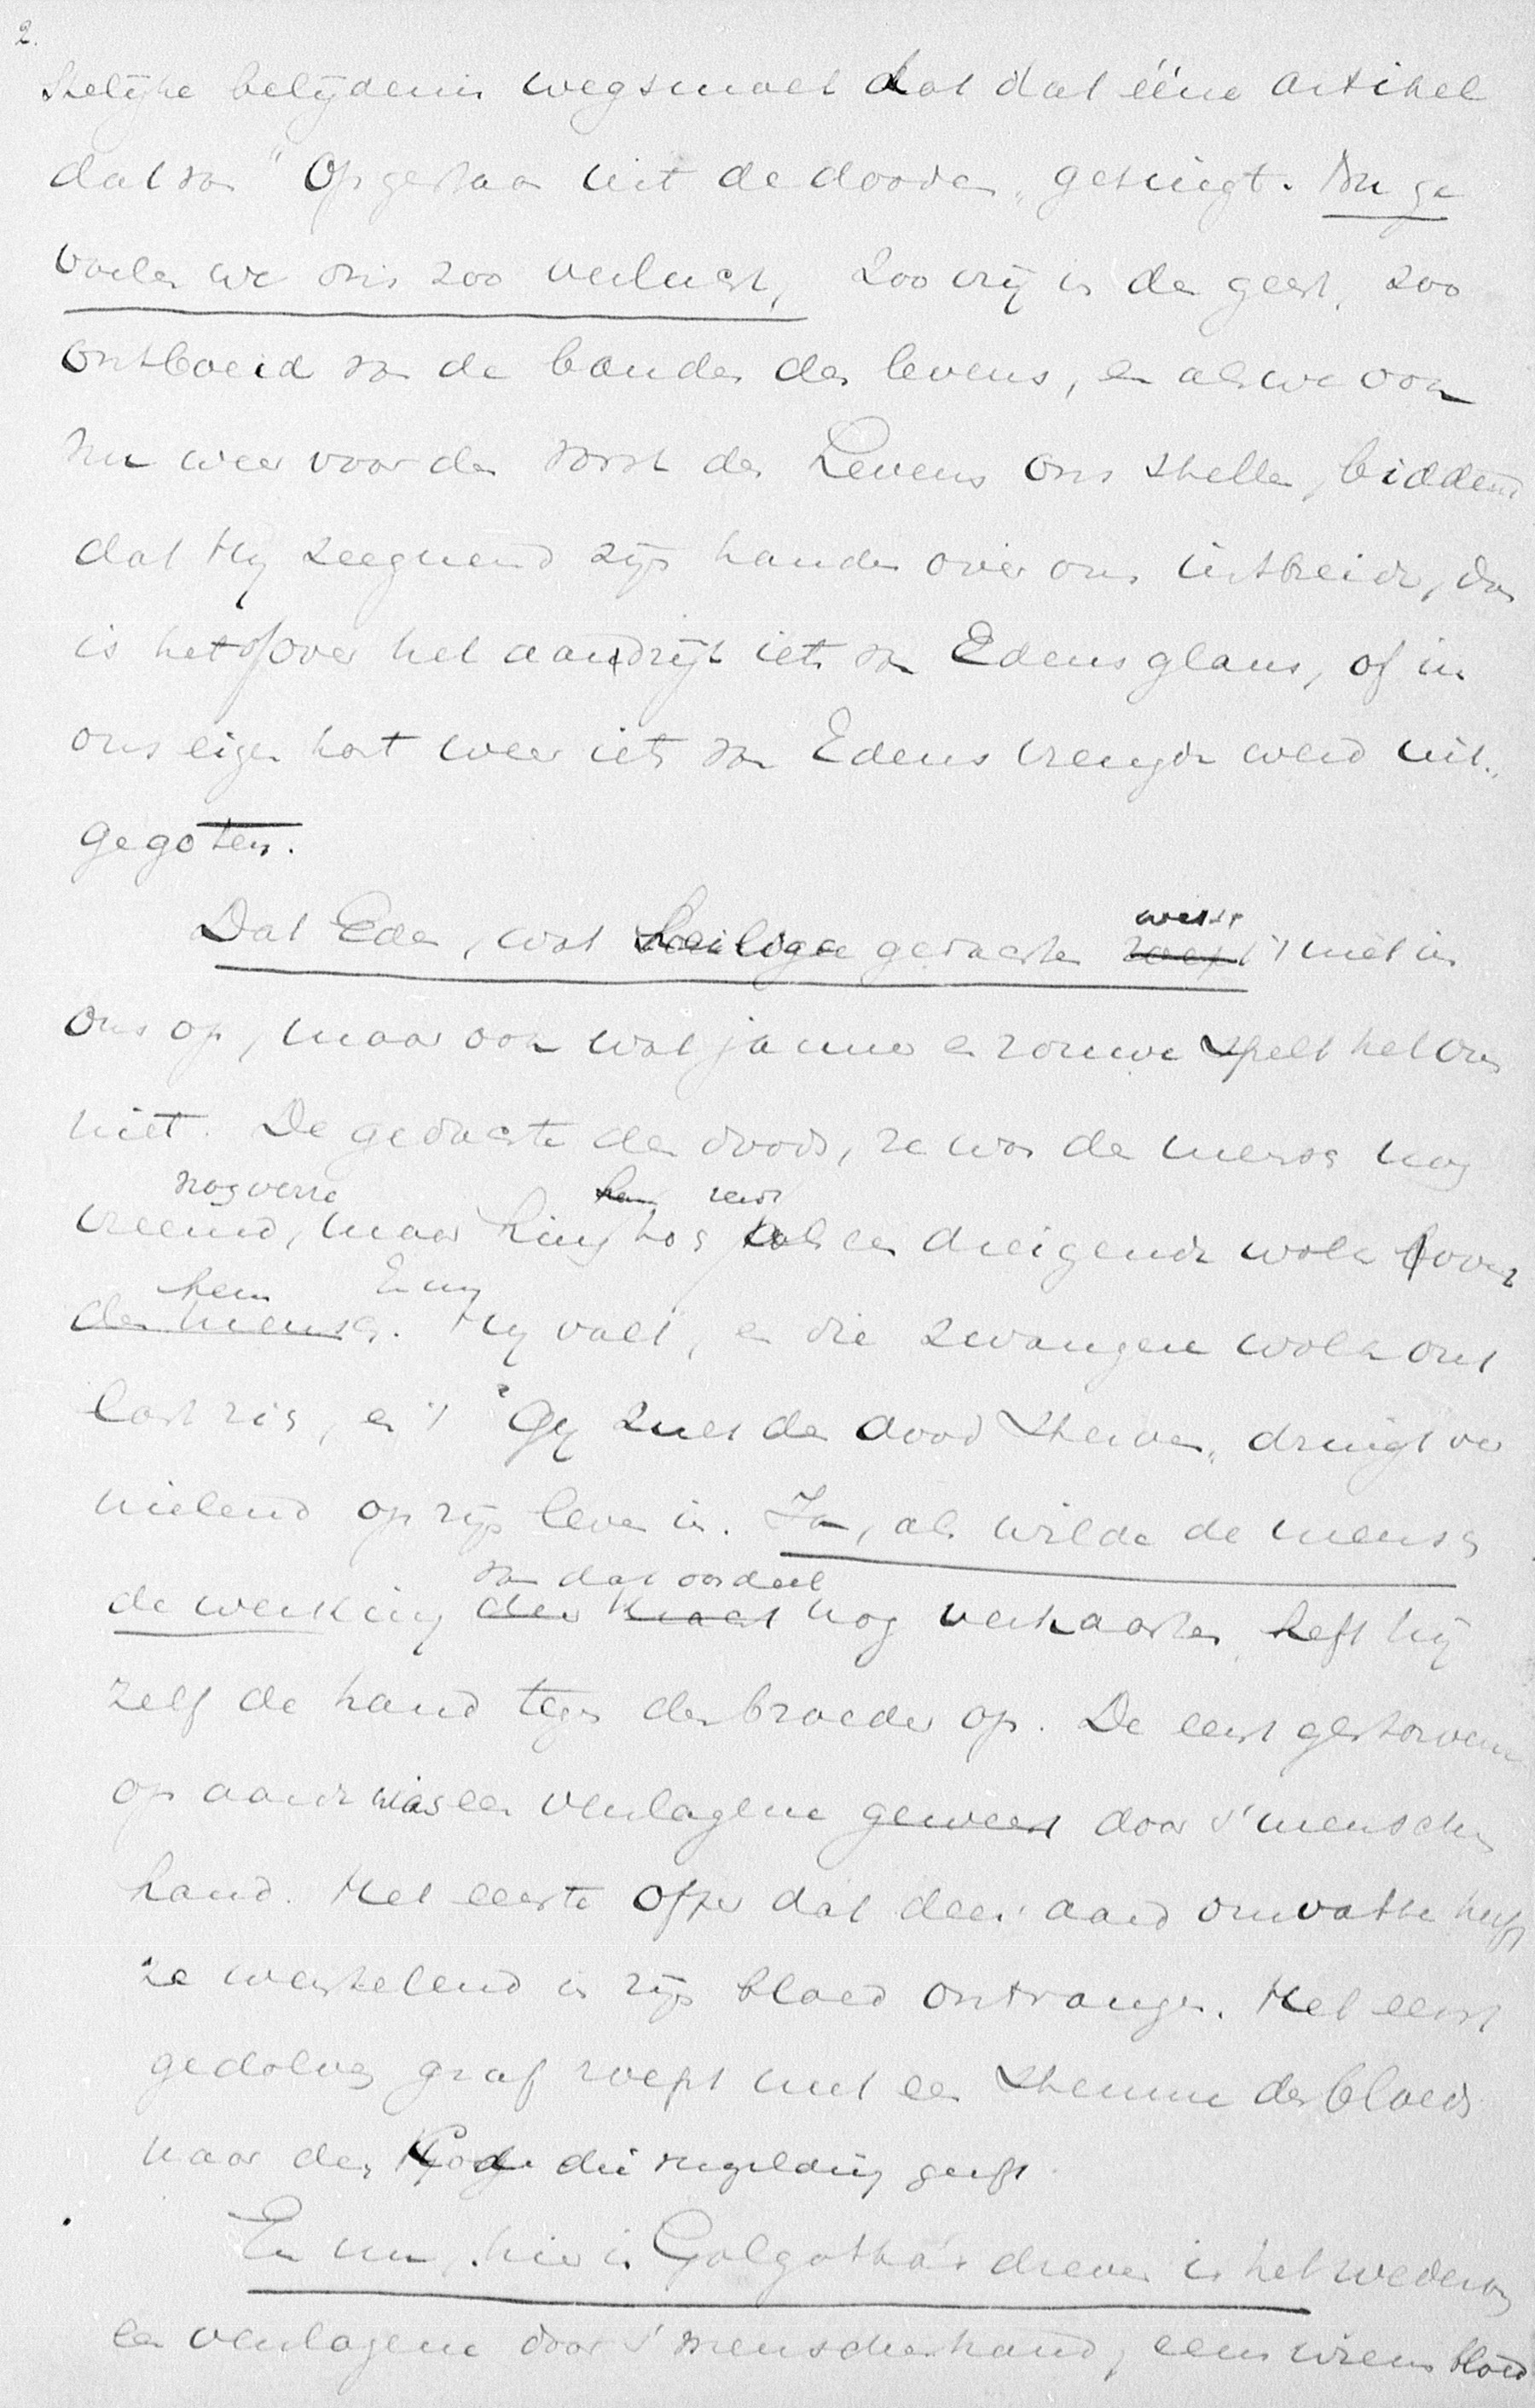 2.
stelijke belijdenis wegsmelt dat dat ééne artikel
dat van "Opgestaan uit de dooden" getuigt. Nu ge
voelen we ons zoo verlucht, zoo vrij is de geest, zoo
ontboeid van de banden des levens, en als we ook
nu weer voor den Vorst des Levens ons stellen, biddend
dat Hij zeegnend zijn handen over ons uitbreide, dan
is het of over het aardrijk iets van Edens glans, of in
ons eigen hart weer iets van Edens vreugde werd uit-
gegoten.
Dat Eden, wat heilige gedachten roept 't niet in
wekt
ons op, maar ook wat jammer en rouwe spelt het ons
niet. De gedachte des doods, ze was de mensch nog
nog verre hem reeds
vreemd, maar hing nog als een dreigende wolk over
hem En nu
den mensch. Hij valt, en die zwangere wolk ont
last zich, en 't "Gij zult den dood sterven" dringt ver
nielend op zijn leven in. Ja, als wilde de mensch
van dat oordeel
de werking der kracht nog verhaasten, heft hij
zelf de hand tegen den broeder op. De eerst gestorvene
op aarde was een verslagene geweest door 's menschen
hand. Het eerste offer dat deez' aard omvatte heeft
ze wentelend in zijn bloed ontvangen. Het eerst
gedolven graf roept met een stemme des bloeds
naar den God die vergelding geeft.
En nu, hier in Golgotha's dreven is het wederom
een verslagene door 's menschenhand, eene wiens bloed